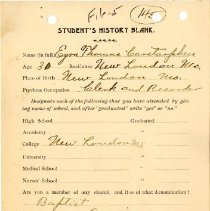 F.6.5
STUDENT'S HISTORY BLANK.
Name (in full) Ezra Thomas
Age 30 Residence New London Mo.
Place of Birth New London Mo.
Previous Occupation Clerk and Recorder
Designate each of the following that you have attended by giving name of school, and after "graduated" write "yes" or "no."
High School Graduated
Academy "
College New London Mo "
University "
Medical School "
Nurses' School "
Are you a member of any church, and if so, what denomination?
Baptist